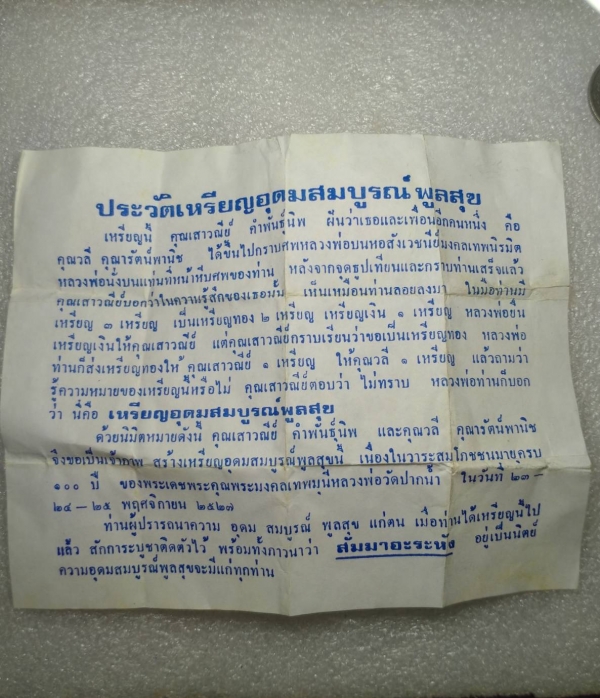 ประวัติเหรียญอุดมสมบูรณ์พูลสุข
เหรียญนี้ คุณเสาวณีย์ คำพันธุ์นิพ ฝันว่าเธอและเพื่อนอีกคนหนึ่ง คือ
คุณวลี คุณารัตน์พานิช ได้ขึ้นไปกราบศพหลวงพ่อบนหอสังเวชนีย์มงคลเทพนิรมิต
หลวงพ่อนั่งบนแท่นที่หน้าหีบศพของท่าน หลังจากจุดธูปเทียนและกราบท่านเสร็จแล้ว
คุณเสาวณีย์บอกว่าในความรู้สึกของเธอนั้น เห็นเหมือนท่านลอยลงมา ในมือท่านมี
เหรียญ ๓ เหรียญ เป็นเหรียญทอง ๒ เหรียญ เหรียญเงิน ๑ เหรียญ หลวงพ่อยื่น
เหรียญเงินให้คุณเสาวณีย์ แต่คุณเสาวณีย์กราบเรียนว่าขอเป็นเหรียญทอง หลวงพ่อ
ท่านก็ส่งเหรียญทองให้ คุณเสาวณีย์ ๑ เหรียญ ให้คุณวลี ๑ เหรียญ แล้วถามว่า
รู้ความหมายของเหรียญนี้หรือไม่ คุณเสาวณีย์ตอบว่า ไม่ทราบ หลวงพ่อท่านก็บอก
ว่า นี่คือ เหรียญอุดมสมบูรณ์พูลสุข
ด้วยนิมิตหมายดังนี้ คุณเสาวณีย์ คำพันธุ์นิพ และคุณวลี คุณารัตน์พานิช
จึงขอเป็นเจ้าภาพ สร้างเหรียญอุดมสมบูรณ์พูลสุขนี้ เนื่องในวาระสมโภชชนมายุครบ
๑๐๐ ปี ของพระเดชพระคุณพระมงคลเทพมุนีหลวงพ่อวัดปากน้ำ ในวันที่ ๒๓ —
๒๔ — ๒๕ พฤศจิกายน ๒๕๒๗
ท่านผู้ปรารถนาความ อุดม สมบูรณ์ พูลสุข แก่ตน เมื่อท่านได้เหรียญนี้ไป
แล้ว สักการะบูชาติดตัวไว้ พร้อมทั้งภาวนาว่า สัมมาอะระหัง อยู่เป็นนิตย์
ความอุดมสมบูรณ์พูลสุขจะมีแก่ทุกท่าน